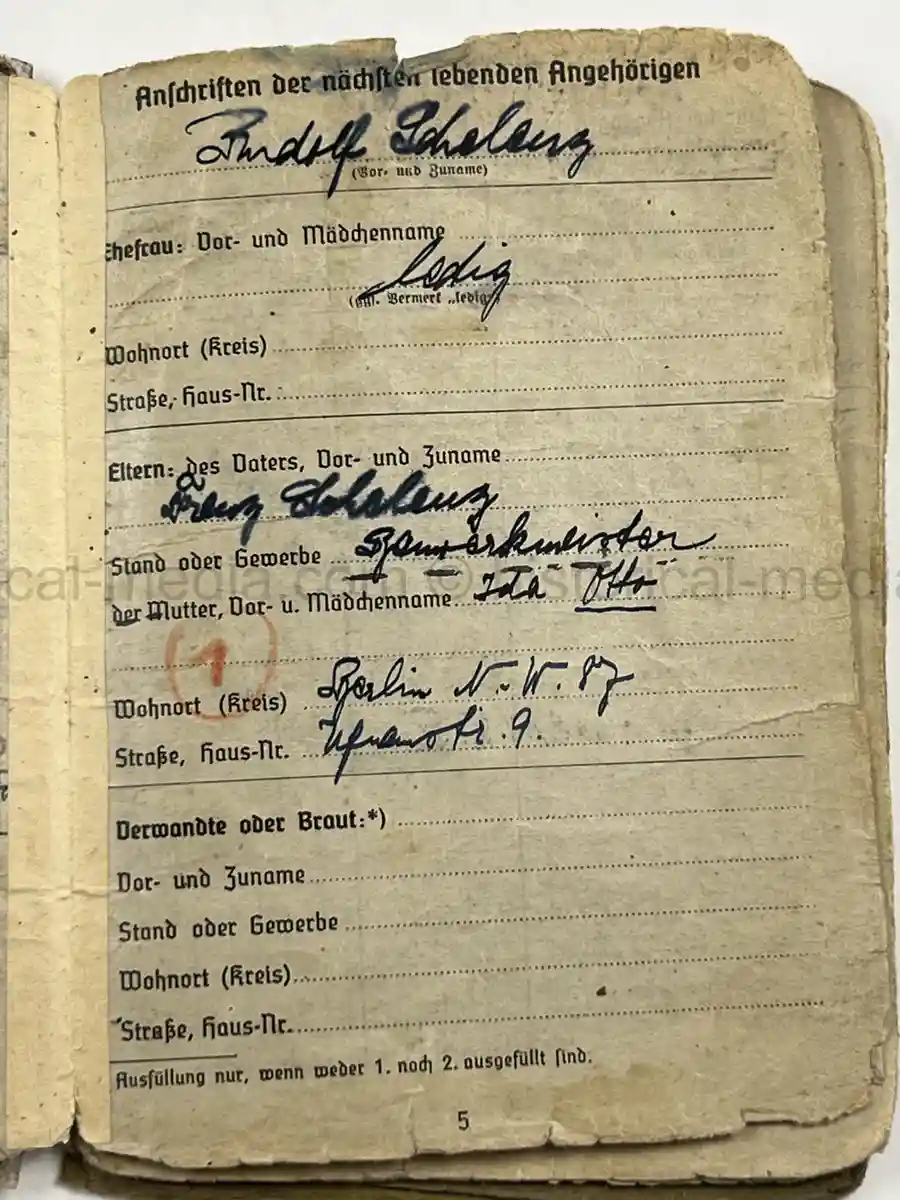 Anschriften der nächsten lebenden Angehörigen
Rudolf Schalenz
(Vor- und Zuname)
Ehefrau: Vor- und Mädchenname
ledig
(ggf. Vermerk „ledig“)
Wohnort (Kreis)
Straße, Haus-Nr.
Eltern: des Vaters, Vor- und Zuname
Franz Schalenz
Stand oder Gewerbe Bauwerkmeister
der Mutter, Vor- u. Mädchenname Ida Otto
1
Wohnort (Kreis) Berlin N.W. 87
Straße, Haus-Nr. 9.
Verwandte oder Braut:*)
Vor- und Zuname
Stand oder Gewerbe
Wohnort (Kreis)
Straße, Haus-Nr.
Ausfüllung nur, wenn weder 1. noch 2. ausgefüllt sind.
5